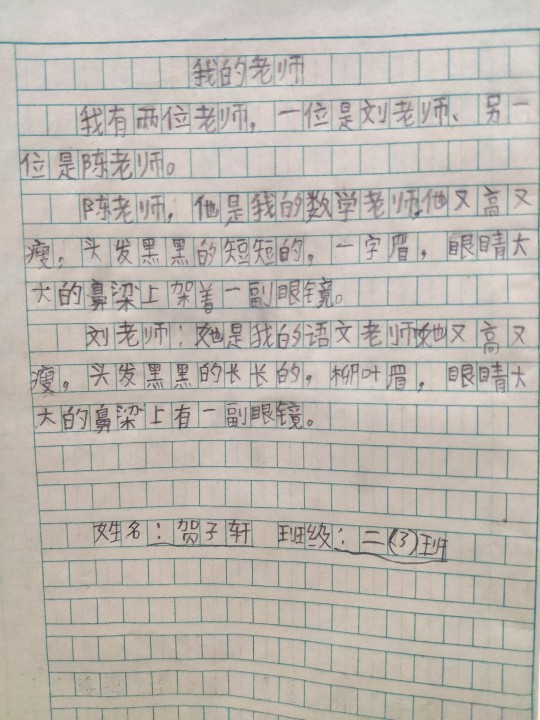 我的老师
我有两位老师，一位是刘老师、另一
位是陈老师。
陈老师，他是我的数学老师他又高又
瘦，头发黑黑的短短的，一字眉，眼睛大
大的鼻梁上架着一副眼镜。
刘老师：她是我的语文老师她又高又
瘦，头发黑黑的长长的，柳叶眉，眼睛大
大的鼻梁上有一副眼镜。
姓名：贺子轩 班级：二(3)班